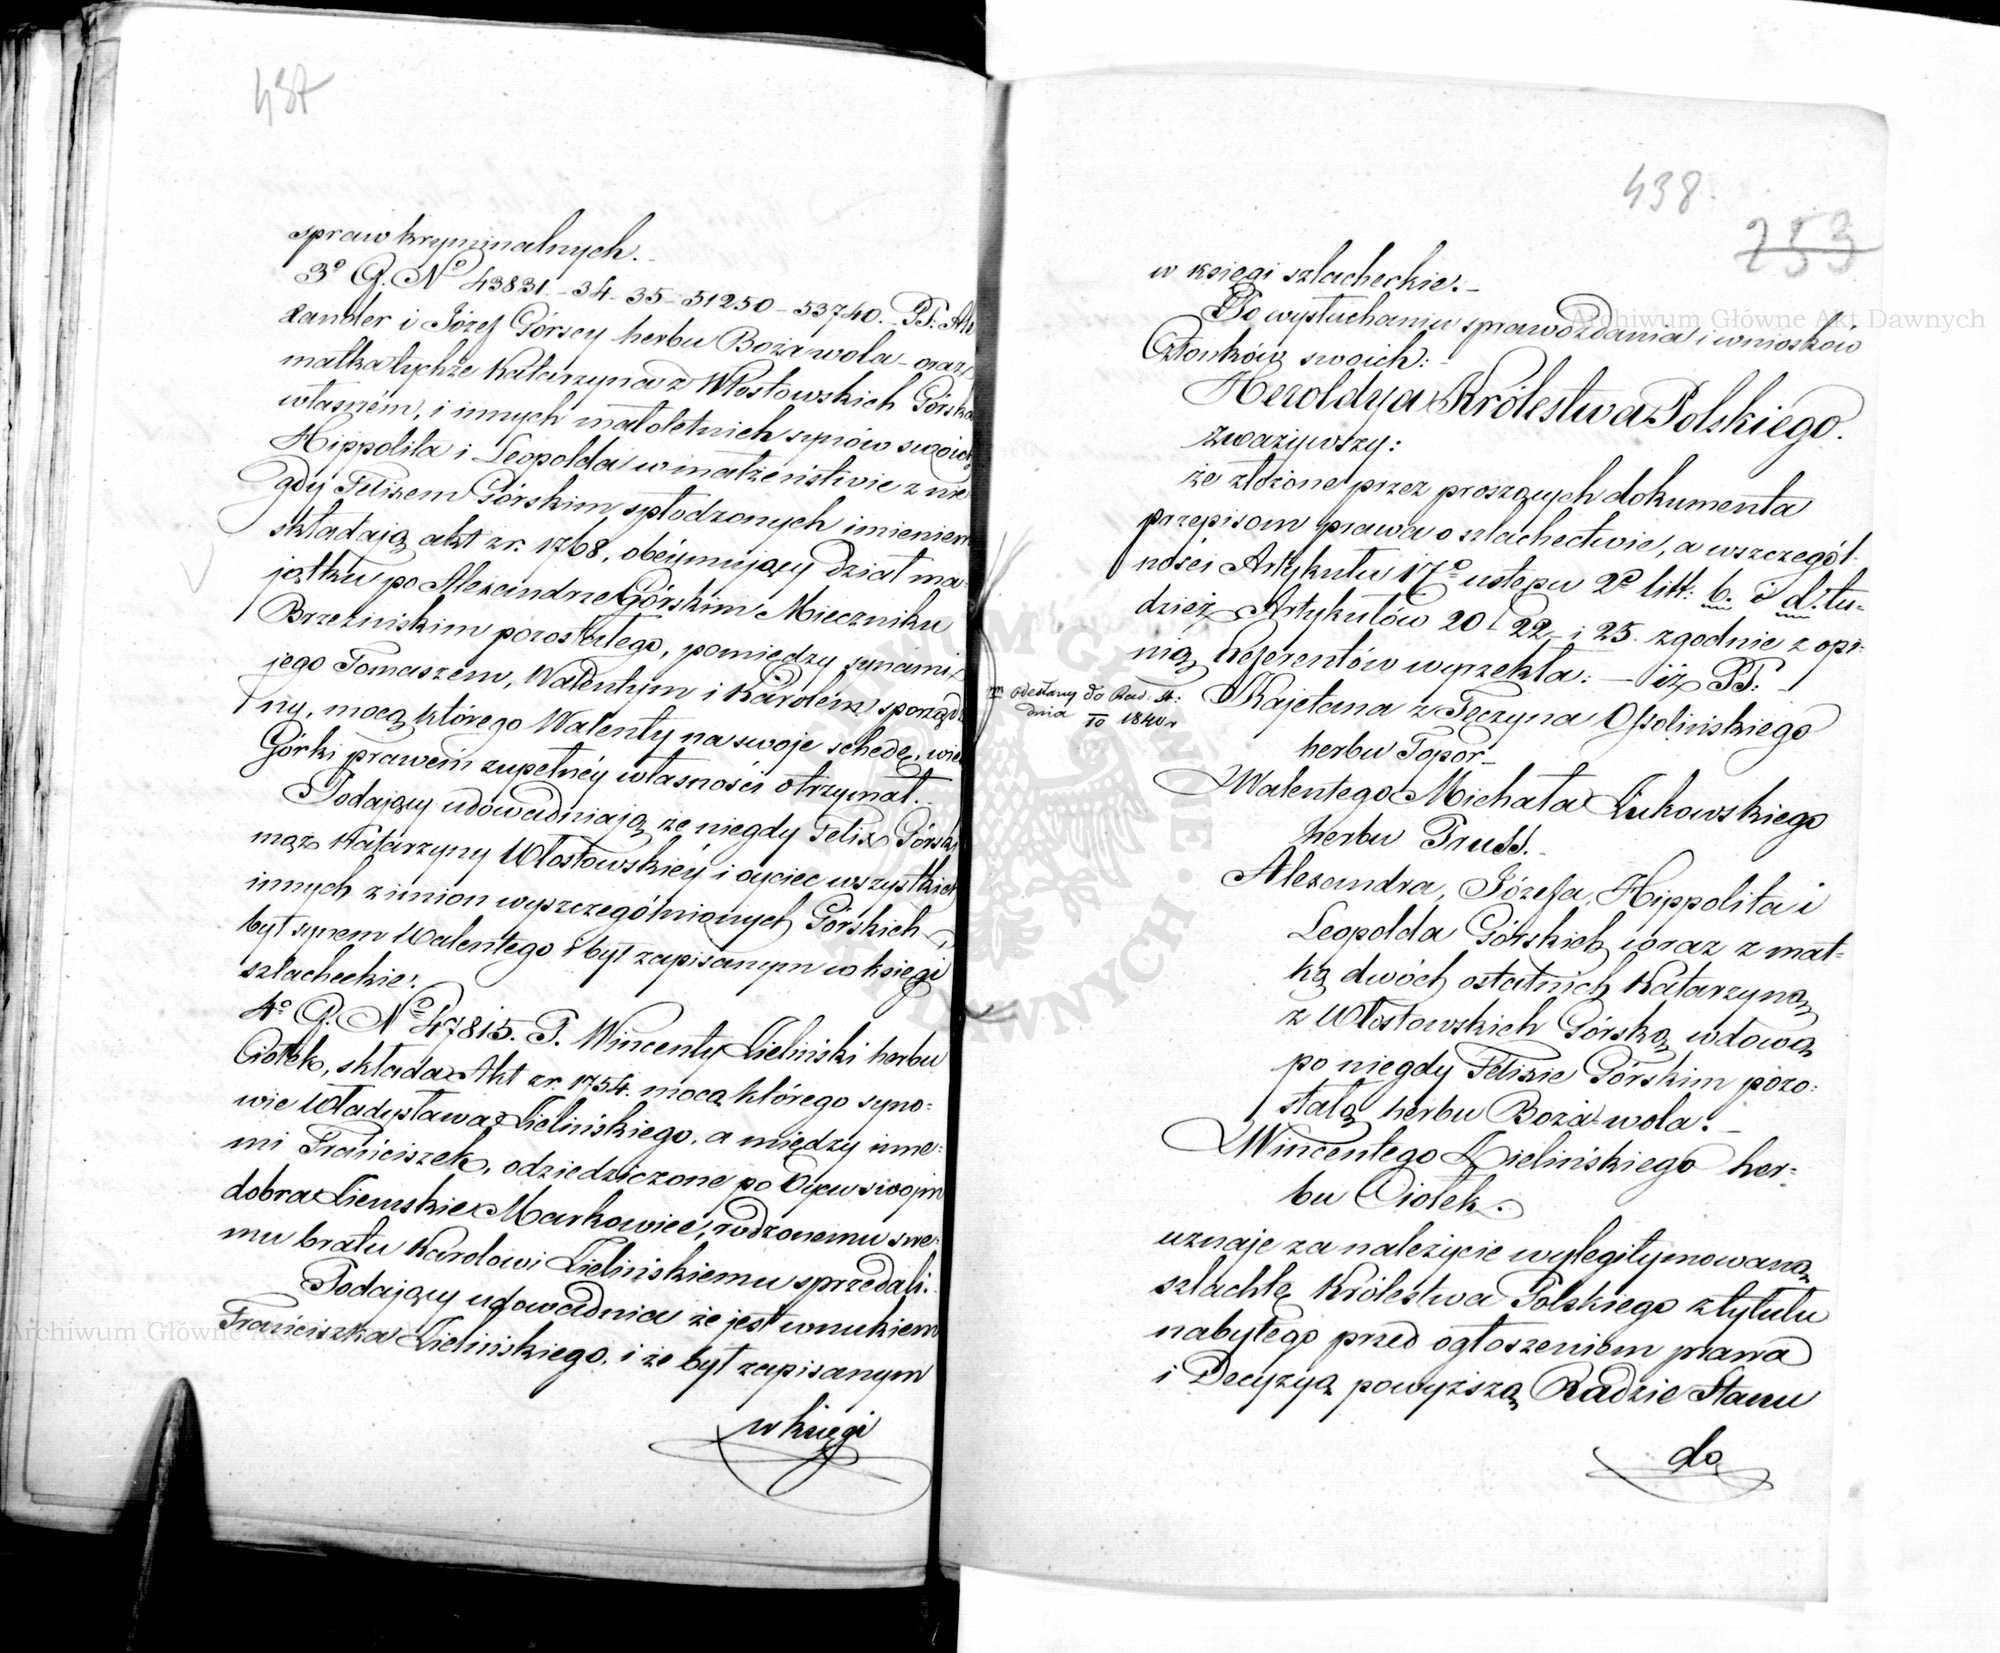 437
spraw kryminalnych.
3° G. N° 43831 - 34 - 35 - 51250 - 53740. PP. Ale
xander i Józef Górscy herbu Boża wola - oraz
matka tychże Katarzyna z Włostowskich Górska
własnem, i innych małoletnich synów swoich
Hippolita i Leopolda w małżeństwie z nie
gdy Felixem Górskim spłodzonych imieniem
składają akt z r. 1768, obeymujący dział ma-
jątku po Alexandrze Górskim Mieczniku
Brzezińskim pozostałego, pomiędzy synami
jego Tomaszem, Walentym i Karolem sporządzo
ny, mocą którego Walenty na swoje schedę, wieś
Górki prawem zupełnéy własności otrzymał.
Podający udowadniają że niegdy Felix Górski
mąż Katarzyny Włostowskiéy i oyciec wszystkich
innych z imion wyszczególnionych Górskich,
był synem Walentego i był zapisanym w księgi
szlacheckie.
4° G. N° 47815. P. Wincenty Zieliński herbu
Ciołek, składa Akt z r. 1754. mocą którego syno-
wie Władysława Zielińskiego, a między inne-
mi Franciszek, odziedziczone po Oycu swojm
dobra Ziemskie Markowice, rodzonemu swe-
mu bratu Karolowi Zielińskiemu sprzedali.
Podający udowadnia że jest wnukiem
Franciszka Zielińskiego, i że był zapisanym
w księgi
438.
253
w księgi szlacheckie.
Po wysłuchaniu sprawozdania i wniosków
Członków swoich:
Heroldya Królestwa Polskiego.
zważywszy:
że złożone przez proszących dokumenta
przepisom prawa o szlachectwie, a wszczegól-
ności Artykułu 17° ustępu 2° litt: b. i d. tu-
dzież Artykułów 20 22 i 25. zgodnie z opi-
nią Referentów wyrzekła: - iż PP.
odesłany do Rad: St:
dnia
IV 1840 r
Kajetana z Tęczyna Ossolińskiego
herbu Topór
Walentego Michała Łukowskiego
herbu Pruss.
Alexandra, Józefa, Hippolita i
Leopolda Górskich, wraz z mat-
ką dwóch ostatnich Katarzyną
z Włostowskich Górską wdową
po niegdy Felixie Górskim pozo-
stałą herbu Boża wola.
Wincentego Zielińskiego her-
bu Ciołek.
uznaje za należycie wylegitymowaną
szlachtę Królestwa Polskiego z tytułu
nabytego przed ogłoszeniem prawa
i Decyzyą powyższą Radzie Stanu
do
Archiwum Główne Akt Dawnych